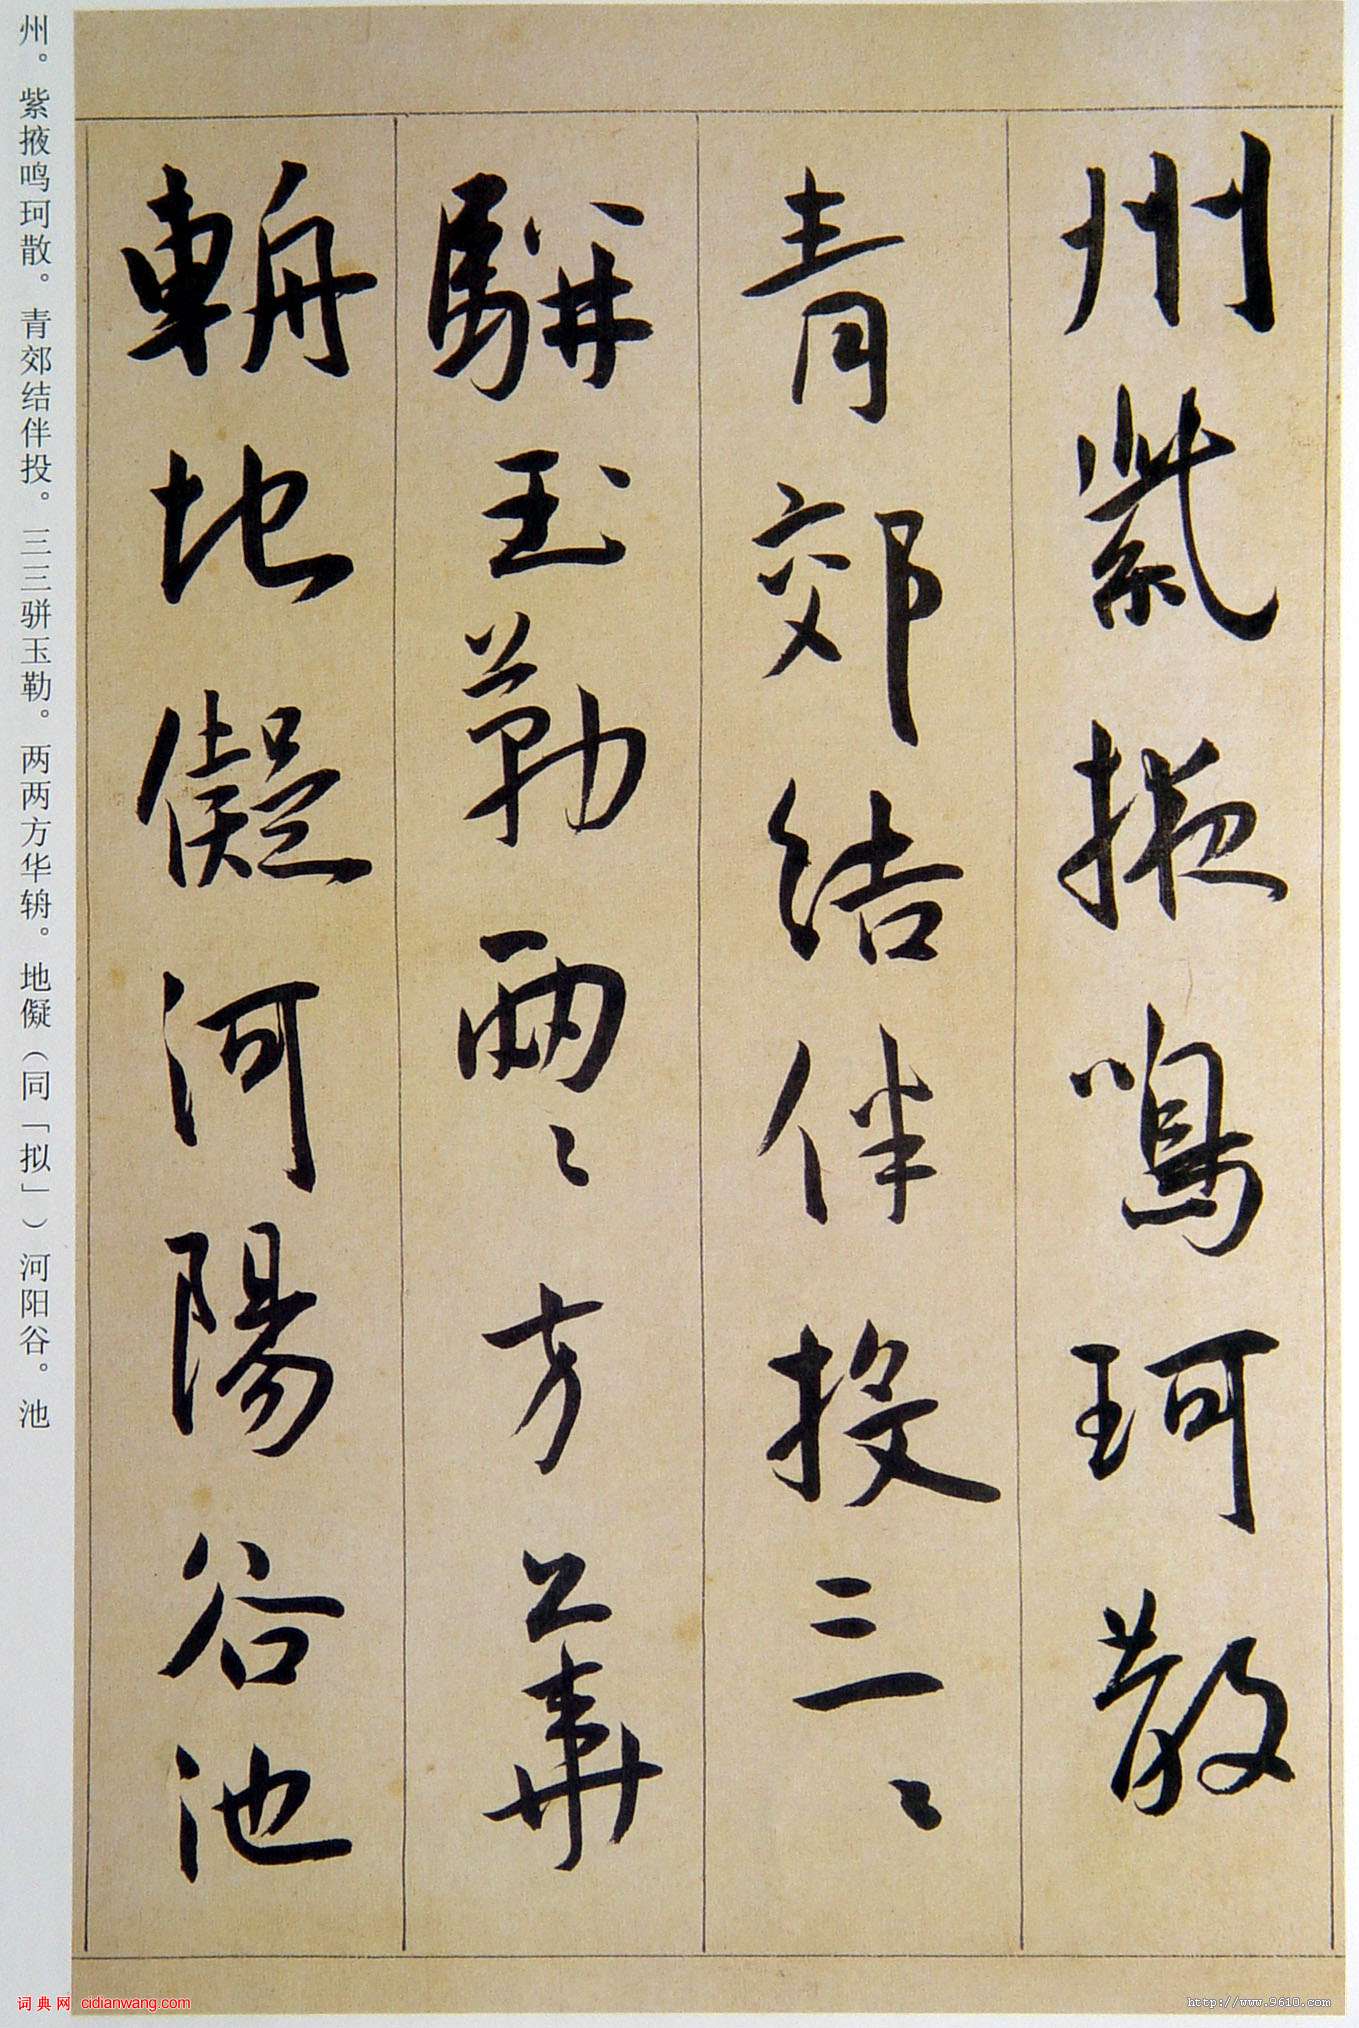 州紫掖鳴珂散
青郊結伴投三〻
駢玉勒兩〻方華
輈地儗河陽谷池
州。紫掖鸣珂散。青郊结伴投。三三骈玉勒。两两方华辀。地儗（同「拟」）河阳谷。池
词典网 cidianwang.com
http://www.9610.com